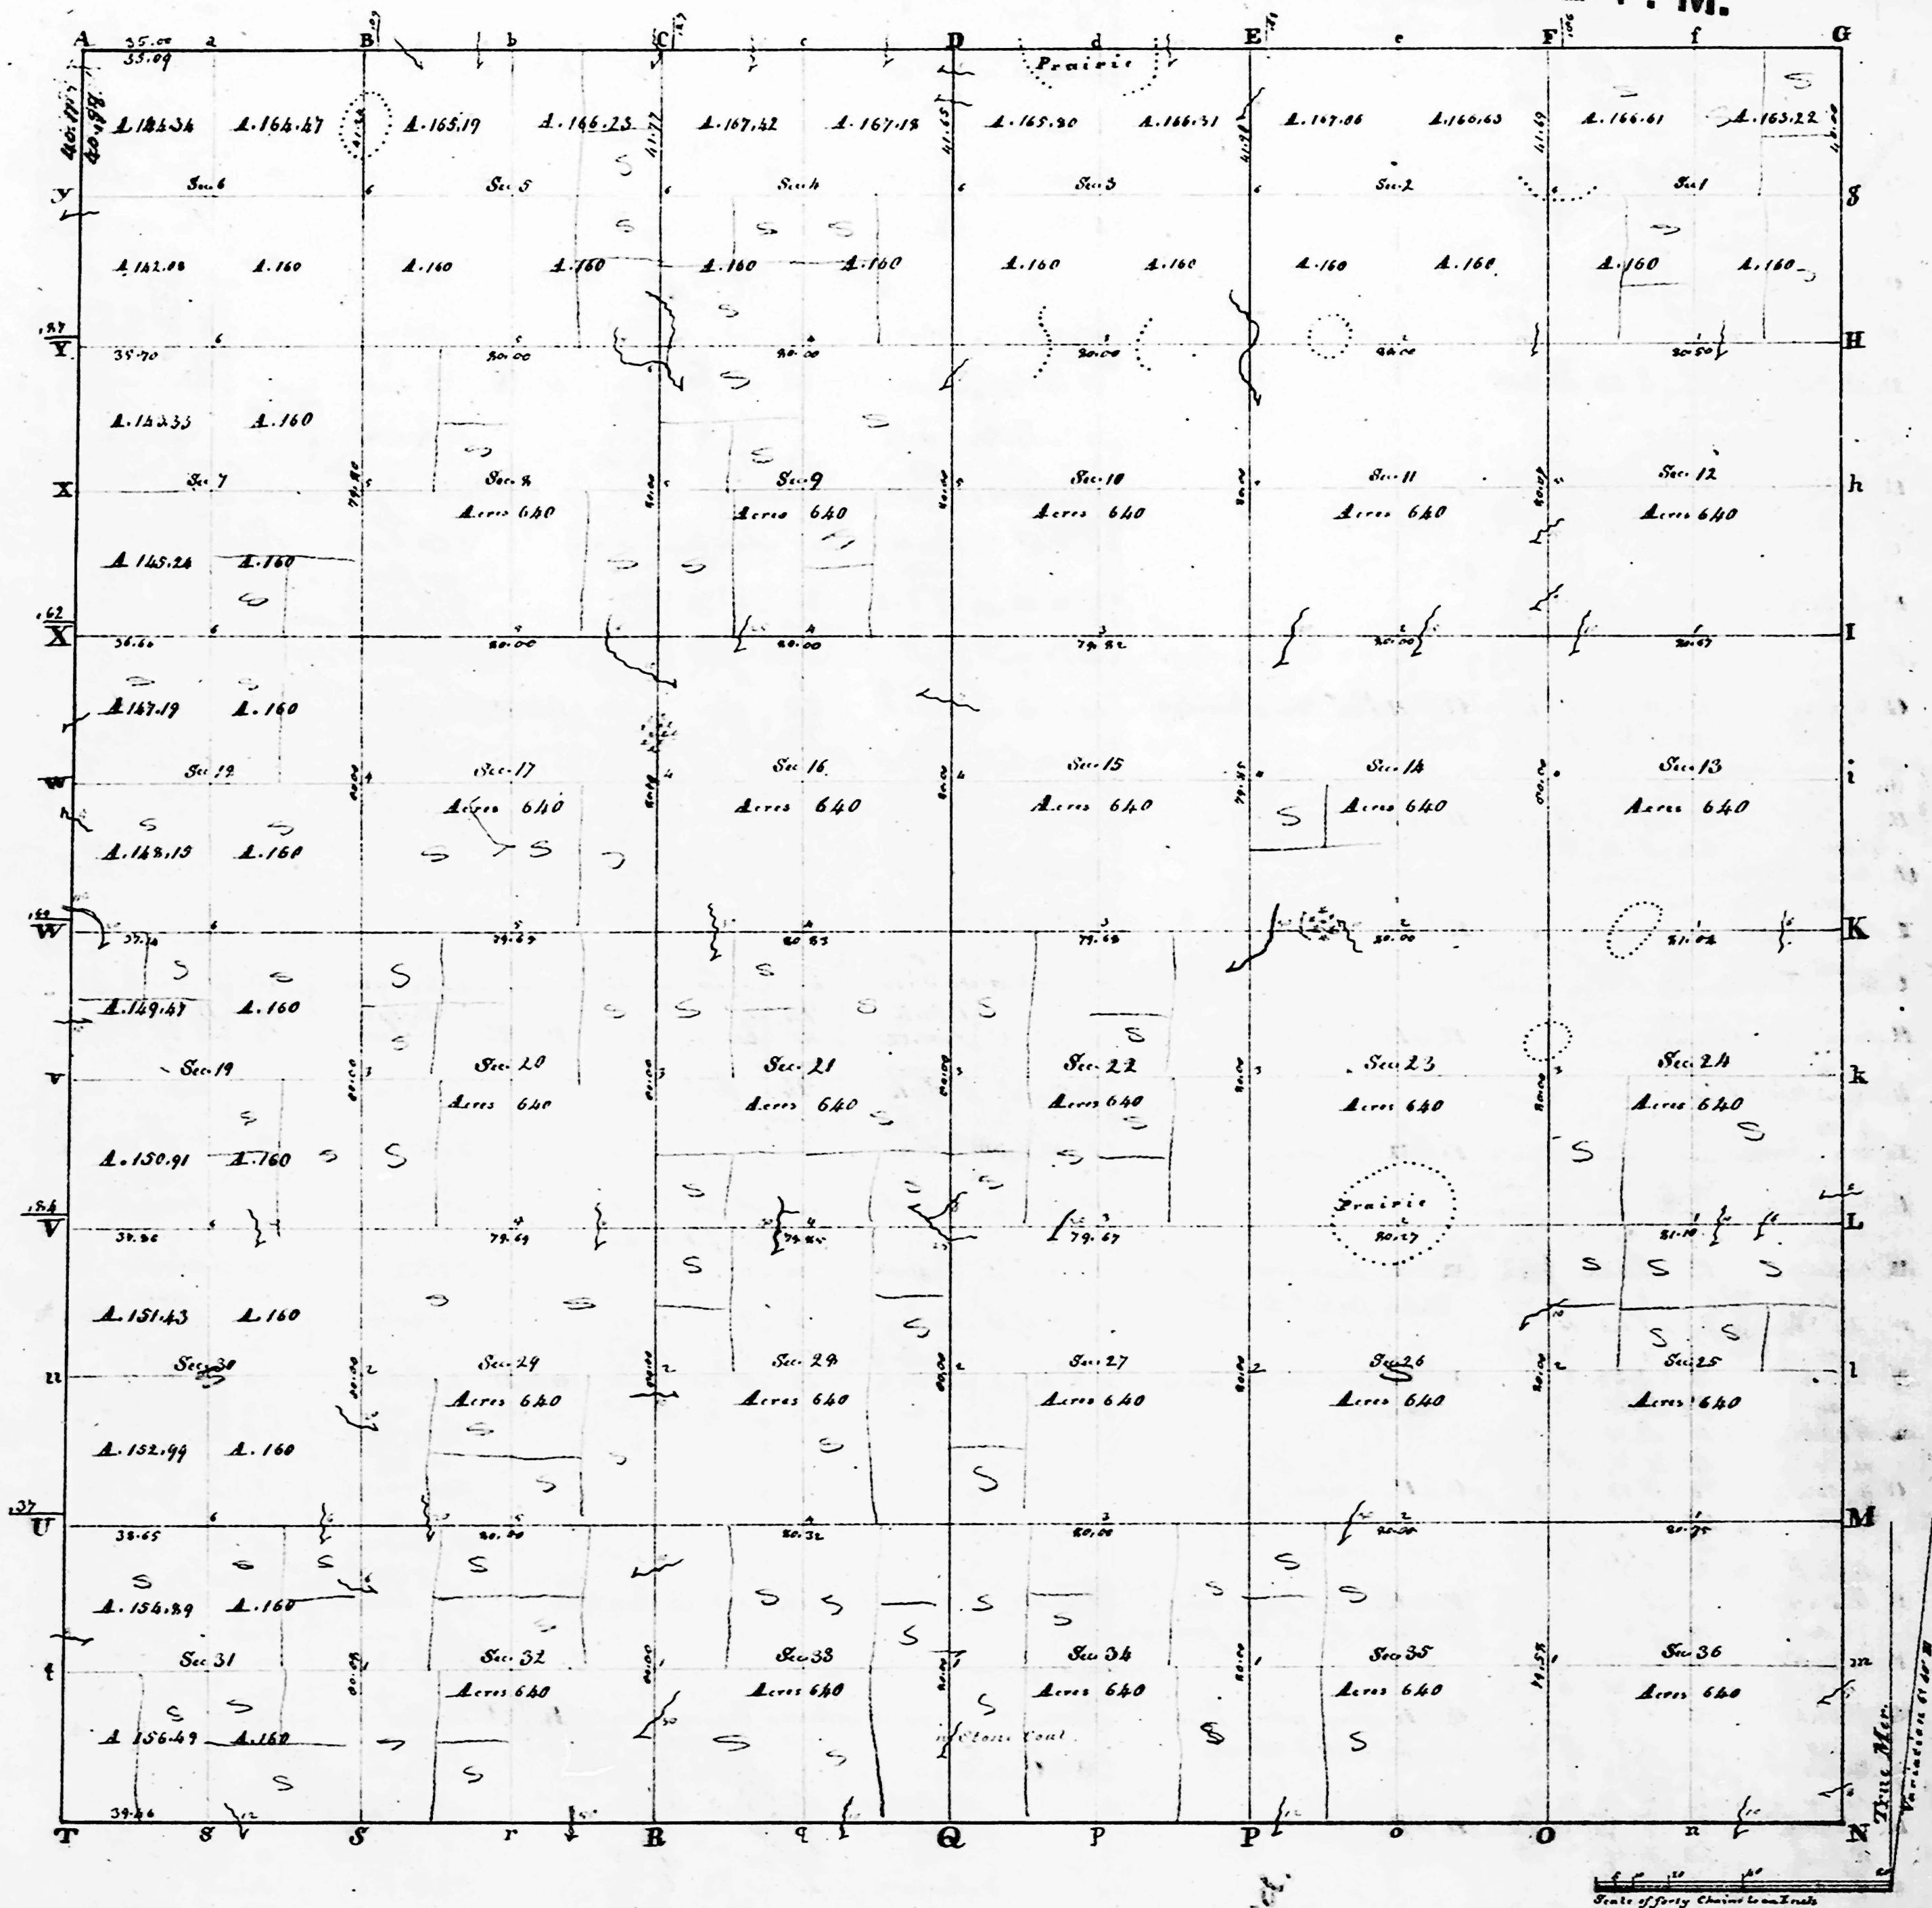 P. M.
A 35.00 a B b C c D d E e F f G
35.09
Prairie
40.98
A.144.34 A.164.47 A.165.19 A.166.23 A.167.42 A.167.18 A.165.80 A.166.31 A.167.06 A.160.63 A.166.61 A.163.22
41.77 41.65 41.69
Sec. 6 Sec. 5 Sec. 4 Sec. 3 Sec. 2 Sec. 1
y 6 6 6 6 6 g
A.142.08 A.160 A.160 A.160 A.160 A.160 A.160 A.160 A.160 A.160 A.160 A.160
.87
Y 6 5 4 3 2 1 H
35.70 80.00 80.00 80.00 80.00 80.50
A.143.33 A.160
79.80 80.00 80.00 80.00 80.07
X Sec. 7 Sec. 8 Sec. 9 Sec. 10 Sec. 11 Sec. 12 h
Acres 640 Acres 640 Acres 640 Acres 640 Acres 640
A.145.24 A.160
.62
X 6 5 4 3 2 1 I
36.60 80.00 80.00 79.82 80.00 80.67
A.147.19 A.160
w Sec. 18 Sec. 17 Sec. 16 Sec. 15 Sec. 14 Sec. 13 i
80.00 80.00 79.85 80.00
Acres 640 Acres 640 Acres 640 Acres 640 Acres 640
A.148.15 A.160
W 6 5 4 3 2 1 K
79.69 80.83 79.68 80.00 81.02
A.149.47 A.160
v Sec. 19 Sec. 20 Sec. 21 Sec. 22 Sec. 23 Sec. 24 k
80.00 80.00 80.00 80.00 80.00
Acres 640 Acres 640 Acres 640 Acres 640 Acres 640
A.150.91 A.160
Prairie
.84
V 6 4 3 2 1 L
79.69 79.85 79.67 80.27 81.10
A.151.43 A.160
u Sec. 30 Sec. 29 Sec. 28 Sec. 27 Sec. 26 Sec. 25 l
80.00 80.00 80.00 80.00 80.00
Acres 640 Acres 640 Acres 640 Acres 640 Acres 640
A.152.99 A.160
.37
U 6 5 4 3 2 1 M
38.65 80.00 80.32 80.00 80.00 80.75
A.154.89 A.160
t Sec. 31 Sec. 32 Sec. 33 Sec. 34 Sec. 35 Sec. 36 m
80.00 80.00 80.00 79.58
Acres 640 Acres 640 Acres 640 Acres 640 Acres 640
A.156.49 A.160
Stone Coal
39.46
T s S r R q Q p P o O n N
True Mer.
Scale of forty Chains to an Inch